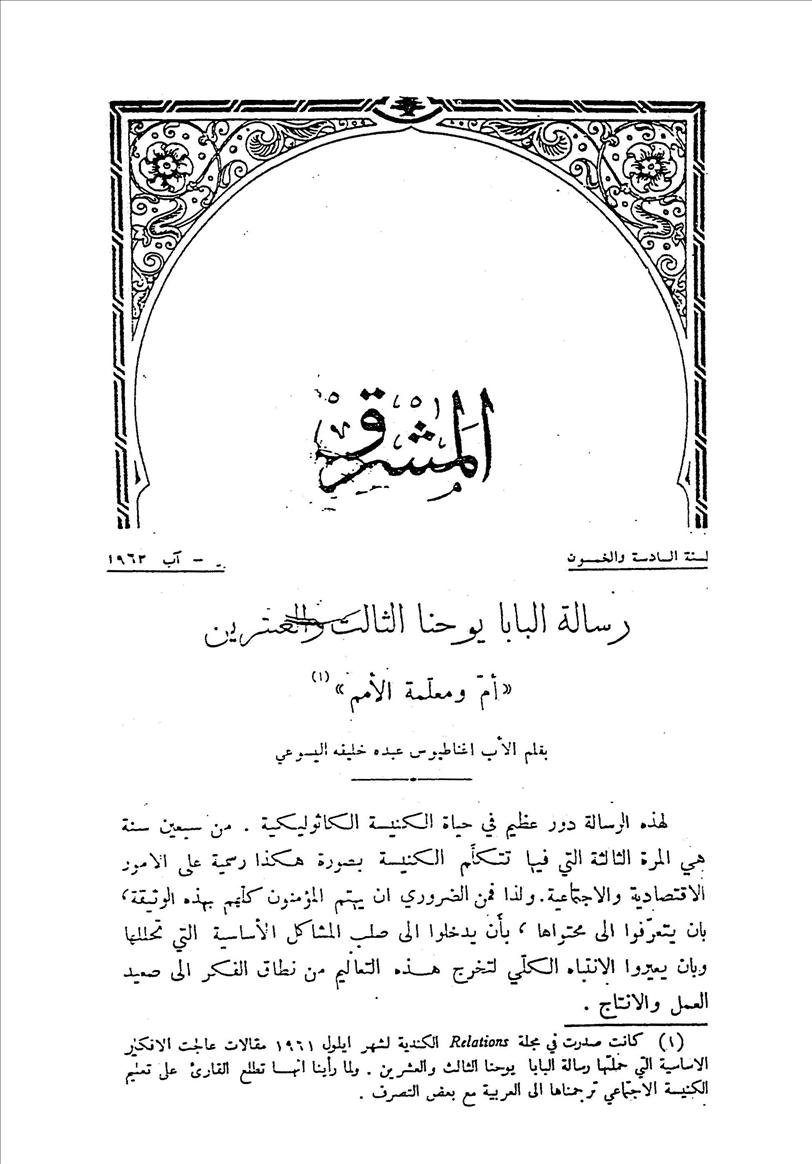 المشرق
لسنة السادسة والخمسون
– آب ١٩٦٢
رسالة البابا يوحنا الثالث والعشرين
«أمّ ومعلّمة الأمم» (١)
بقلم الأب اغناطيوس عبده خليفه اليسوعي
لهذه الرسالة دور عظيم في حياة الكنيسة الكاثوليكية . من سبعين سنة
هي المرة الثالثة التي فيها تتكلّم الكنيسة بصورة هكذا رسمية على الامور
الاقتصادية والاجتماعية. ولذا فمن الضروري ان يهتم المؤمنون كلّهم بهذه الوثيقة،
بان يتعرّفوا الى محتواها ، بأن يدخلوا الى صلب المشاكل الأساسية التي تحللها
وبان يعيروا الانتباه الكلّي لتخرج هذه التعاليم من نطاق الفكر الى صعيد
العمل والانتاج .
(١) كانت صدرت في مجلة Relations الكندية لشهر ايلول ١٩٦١ مقالات عالجت الافكار
الاساسية التي حملتها رسالة البابا يوحنا الثالث والعشرين . ولما رأينا انها تطلع القارئ على تعليم
الكنيسة الاجتماعي ترجمناها الى العربية مع بعض التصرف .